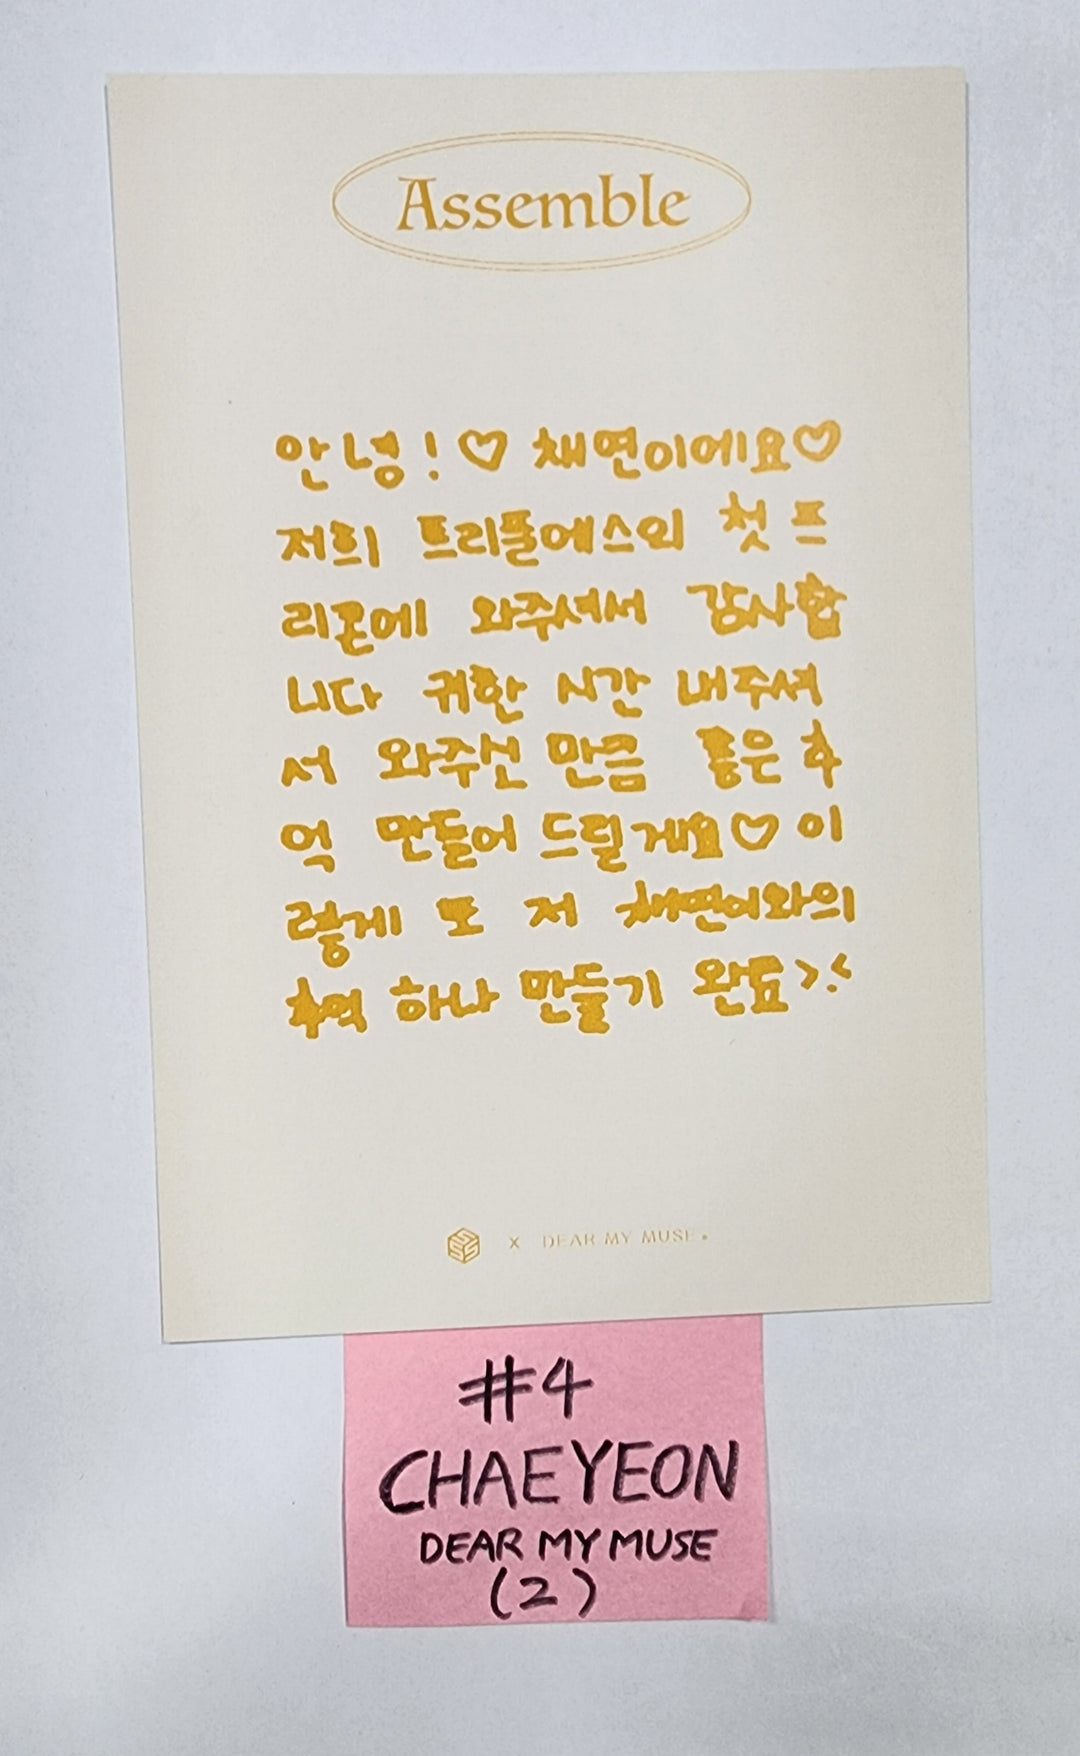 Assemble
안녕!♡ 채연이에요♡
저희 트리플에스의 첫 프
리콘에 와주셔서 감사합
니다 귀한 시간 내주셔
서 와주신 만큼 좋은 추
억 만들어 드릴게요♡ 이
렇게 또 저 채연이와의
추억 하나 만들기 완료>.<
SSS X DEAR MY MUSE.
#4
CHAEYEON
DEAR MY MUSE
(2)